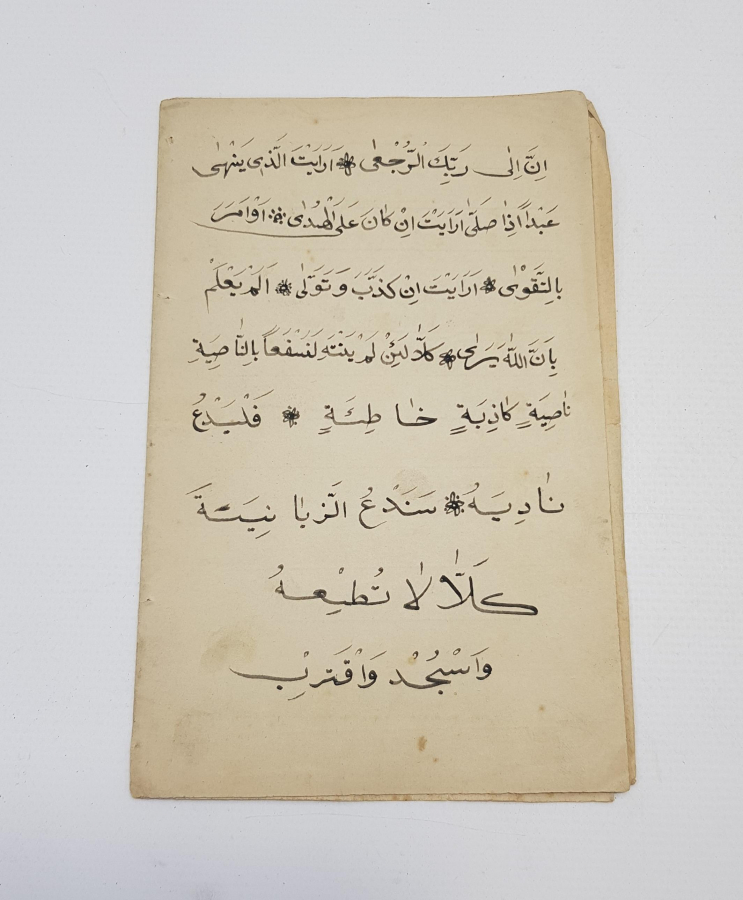 اِنَّ اِلٰى رَبِّكَ الرُّجْعٰى ❋ اَرَاَيْتَ الَّذِى يَنْهٰى
عَبْداً اِذٰا صَلّٰى اَرَاَيْتَ اِنْ كٰانَ عَلَى الْهُدٰى ❋ اَوْ اَمَرَ
بِالتَّقْوٰى ❋ اَرَاَيْتَ اِنْ كَذَّبَ وَ تَوَلّٰى ❋ اَلَمْ يَعْلَمْ
بِاَنَّ اللّٰهَ يَرٰى ❋ كَلّٰا لَئِنْ لَمْ يَنْتَهِ لَنَسْفَعاً بِالنّٰاصِيَةِ
نٰاصِيَةٍ كٰاذِبَةٍ خٰاطِئَةٍ ❋ فَلْيَدْعُ
نٰادِيَهُ ❋ سَنَدْعُ الزَّبٰانِيَةَ
كَلّٰا لٰا تُطِعْهُ
وَاسْجُدْ وَاقْتَرِبْ